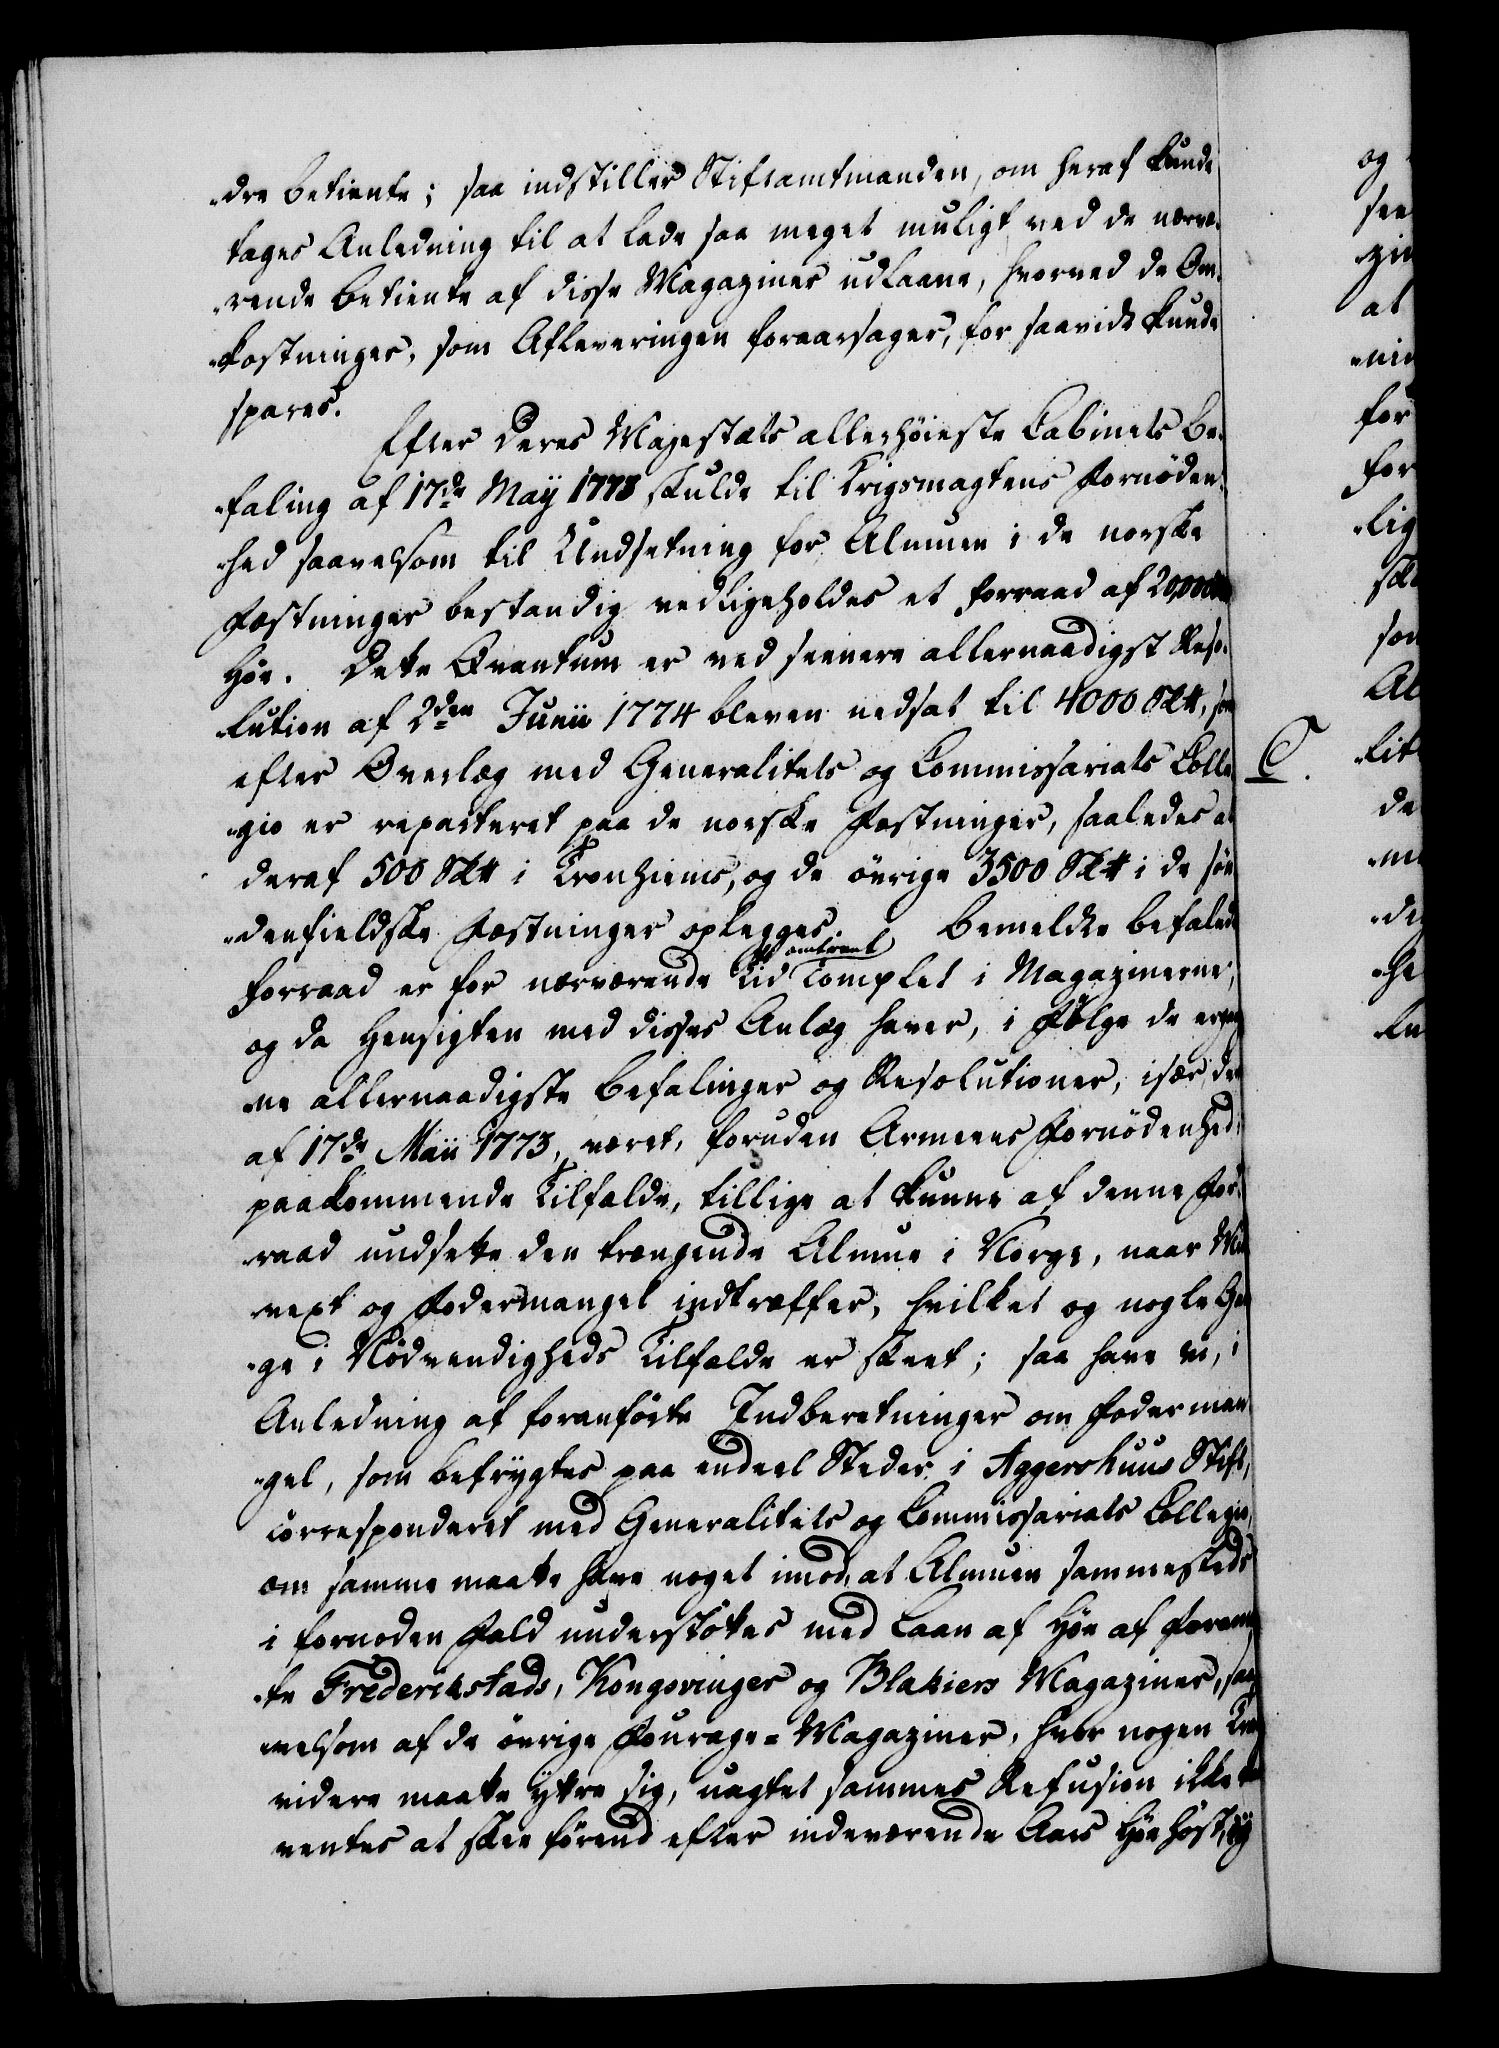 -dre betiente; saa indstiller Stiftamtmanden, om heraf kunde
tages Anledning til at lade saa meget muligt ved de nærvæ-
-rende betiente af disse Magaziner udlaane, hvorved de Om-
-kostninger, som Afleveringen foraarsager, for saavidt kunde
spares.
Efter Deres Majestæts allerhöieste Cabinets Be-
-faling af 17de Maÿ 1773 skulde til Krigsmagtens Fornöden-
-hed saavelsom til Undsetning for Almuen i de norske
Fæstninger bestandig vedligeholdes et Forraad af 20,000
Höe. Dette Qvantum er ved seenere allernaadigst Reso-
-lution af 2den Junii 1774 bleven nedsat til 4000 Sk℔, som
efter Overlæg med Generalitets og Commissariats Colle-
-gio er reparteret paa de norske Fæstninger, saaledes at
deraf 500 Sk℔ i Tronhiems, og de övrige 3500 Sk℔ i de sön-
-denfieldske Fæstninger oplegges. Bemeldte befalede
Forraad er for nærværende Tid omtrent Complet i Magazinerne,
og da Hensigten med disses Anlæg haver, i Fölge de ergang-
-ne allernaadigste Befalinger og Resolutioner, især den
af 17de Maii 1773, været, foruden Armeens Fornödenhed i
paakommende Tilfælde, tillige at kunne af denne For-
-raad undsette den trængende Almue i Norge, naar Mis-
-vext og Fodermangel indtræffer, hvilket og nogle Gan-
-ge i Nödvendigheds Tilfælde er skeet; saa have vi, i
Anledning af foranförte Indberetninger om Foderman-
-gel, som befrÿgtes paa endeel Steder i Aggershuus Stift,
correspouderet med Generalitets og Commissariats Collegio,
om samme maatte have noget imod, at Almuen sammesteds
i fornoden Fald understöttes med Laan af Höe af Foromeld-
-te Frederikstads, Kongsvinger og Blakiers Magaziner, saa-
-velsom af de övrige Fourage-Magaziner, hvor nogen Trang
videre maatte ÿttre sig, uagtet sammes Refusion ikke kan
ventes at skee förend efter indeværende Aars Höe höst, og
C.